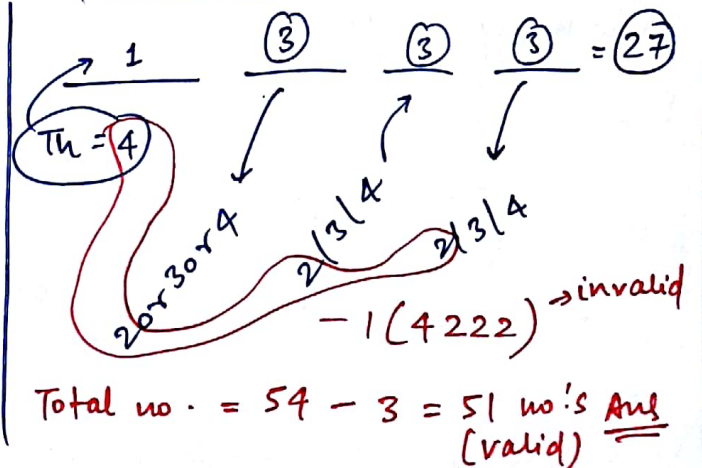 1 3 3 3 = 27
Th = 4
2 or 3 or 4 2/3/4 2/3/4
- 1 (4222) → invalid
Total no. = 54 - 3 = 51 no's Ans
(valid)